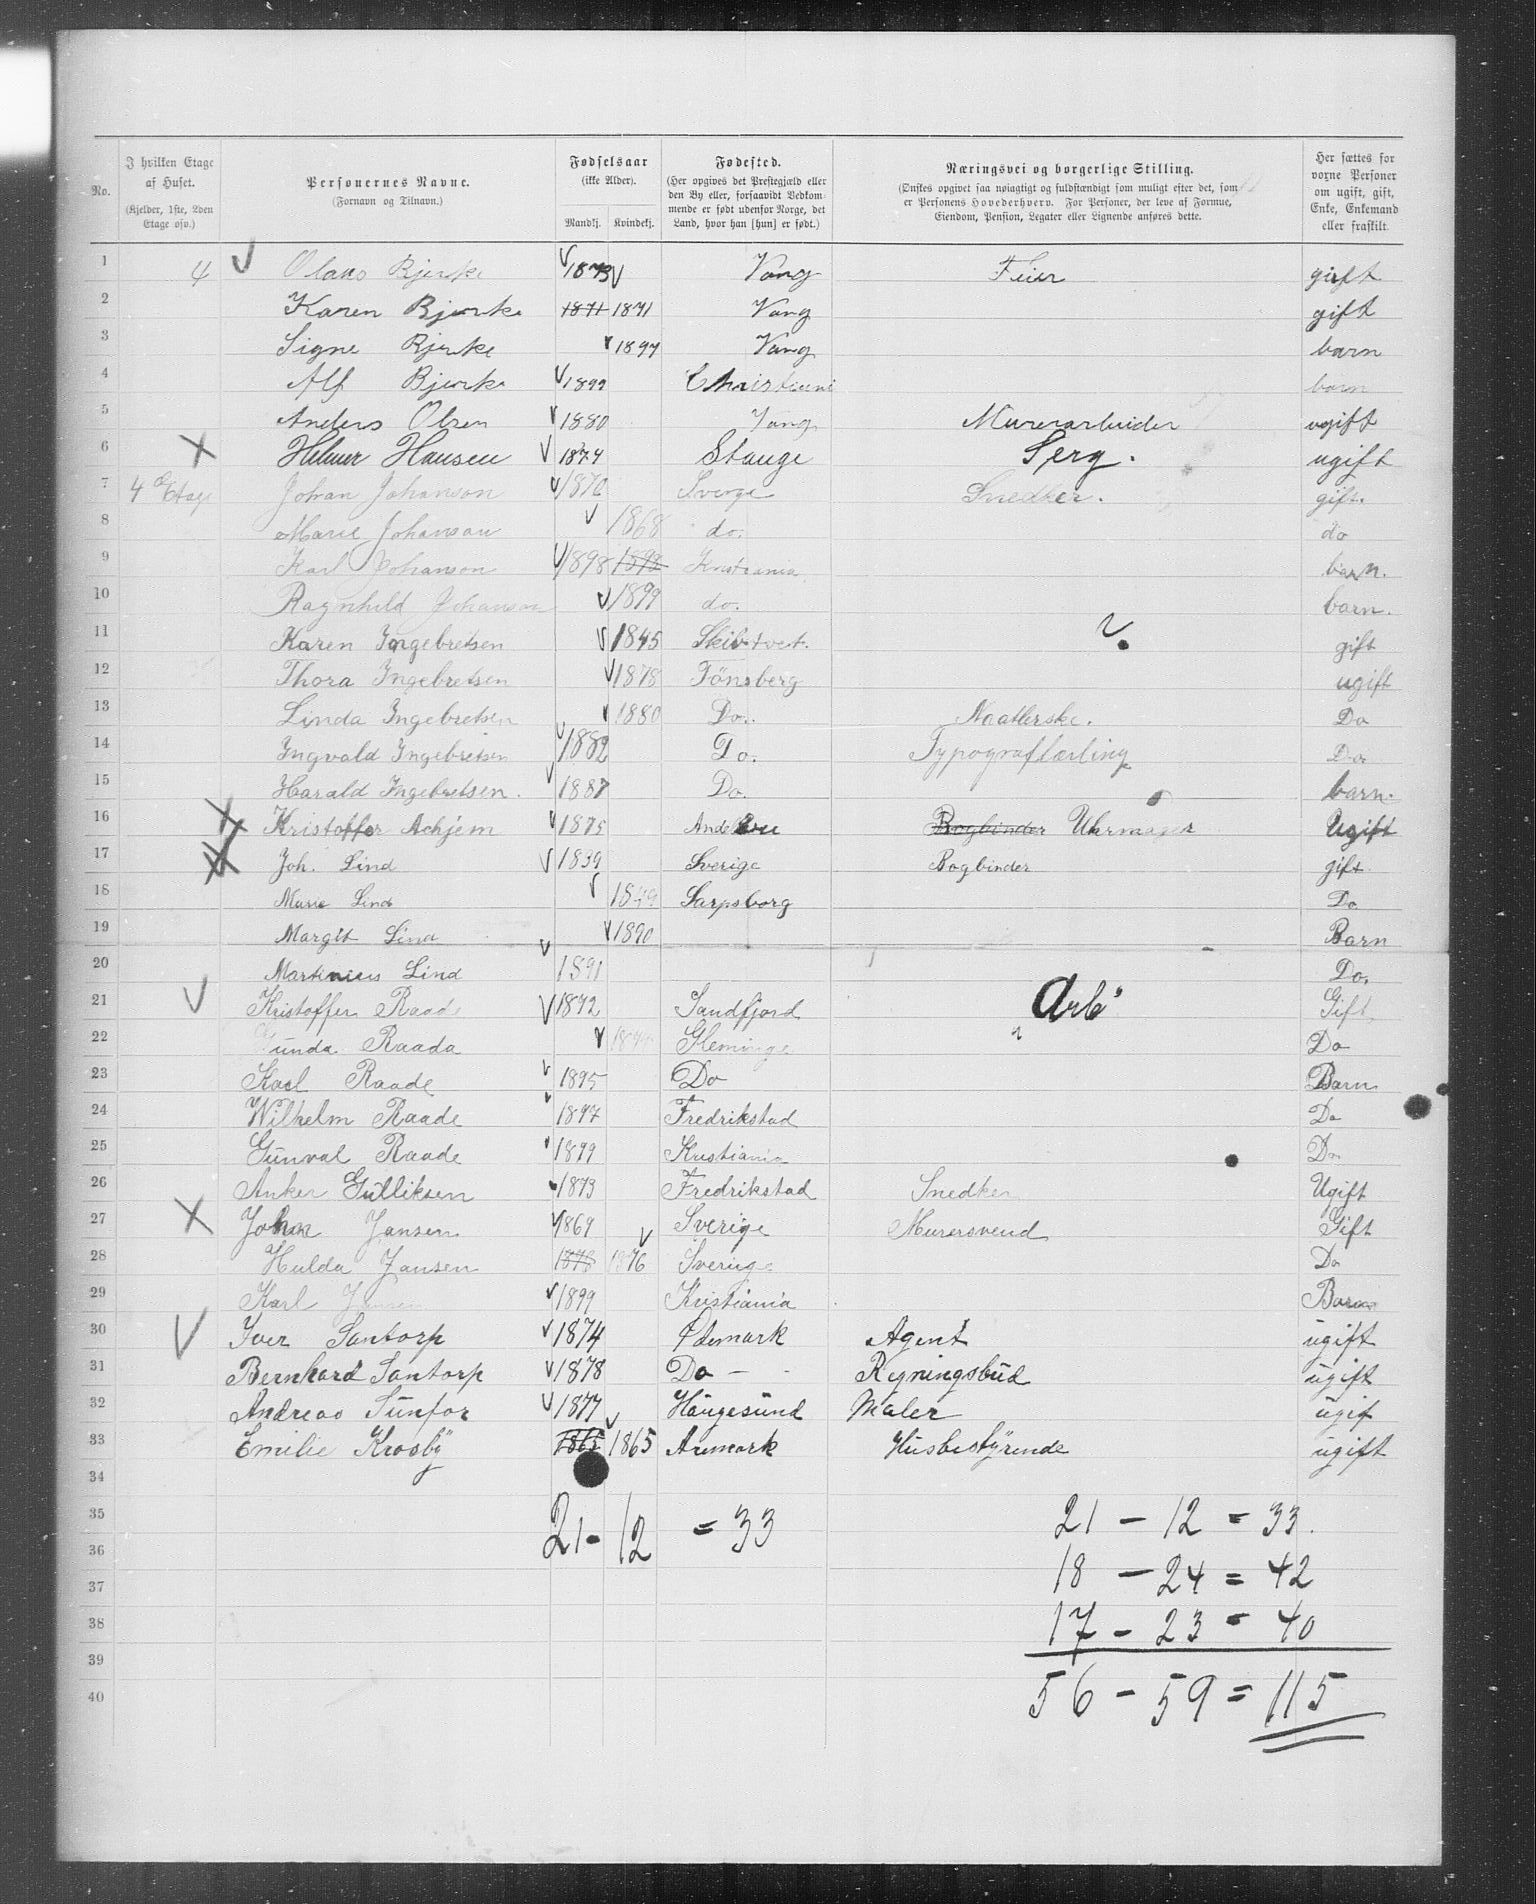 No.
I hvilken Etage af Huset. (Kjelder, 1ste, 2den Etage osv.)
Personernes Navne. (Fornavn og Tilnavn.)
Fødselsaar (ikke Alder). Mandkj. Kvindekj.
Fødested. (Her opgives det Prestegjæld eller den By eller, forsaavidt Vedkommende er født udenfor Norge, det Land, hvor han [hun] er født.)
Næringsvei og borgerlige Stilling. (Ønskes opgivet saa nøiagtigt og fuldstændigt som muligt efter det, som er Personens Hovederhverv. For Personer, der leve af Formue, Eiendom, Pension, Legater eller Lignende anføres dette.
Her sættes for voxne Personer om ugift, gift, Enke, Enkemand eller fraskilt.
1 4 Olaus Bjerke 1873 Vang Feier gift
2 Karen Bjerke 1871 1871 Vang gift
3 Signe Bjerke 1897 Vang barn
4 Alf Bjerke 1899 Christiani barn
5 Anders Olsen 1880 Vang Murerarbeider ugift
6 Helmer Hansen 1874 Stange Serg. ugift
7 4de Etage Johan Johanson 1876 Sverge Snedker. gift.
8 Marie Johanson 1868 do. do
9 Karl Johanson 1898 1898 Kristiania barn.
10 Ragnhild Johanson 1899 do. barn.
11 Karen Ingebretsen 1845 Skibtvet. ? gift
12 Thora Ingebretsen 1878 Tönsberg ugift
13 Linda Ingebretsen 1880 Do. Naatlerske. Do
14 Ingvald Ingebretsen 1882 Do. Typograflærling Do
15 Harald Ingebretsen. 1887 Do. barn.
16 Kristoffer Achjem 1875 Bogbinder Uhrmager Ugift
17 Joh. Lind 1839 Sverige Bogbinder gift
18 Marie Lind Sarpsborg Do
19 Margit Lind 1890 Barn
20 Martinius Lind 1891 Do.
21 Kristoffer Raade 1872 Sandfjord Arb. Gift
22 Gunda Raada Gleminge Do
23 Karl Raade 1895 Do Barn
24 Wilhelm Raade 1897 Fredrikstad Do
25 Gunval Raade 1899 Kristiania Do
26 Anker Gulliksen 1873 Fredrikstad Snedker Ugift
27 Johan Jansen 1869 Sverige Murersvend Gift
28 Hulda Jansen 1876 1876 Sverige Do
29 Karl Jansen 1899 Kristiania Barn
30 Iver Santorp 1874 Ødemark Agent ugift
31 Bernhard Santorp 1878 Do - Regningsbud ugift
32 Andreas Sunfor 1877 Haugesund Maler ugif
33 Emilie Krosby 1865 1865 Aremark Husbestyrende ugift
34
35 21 - 12 = 33 21 - 12 = 33.
36 18 - 24 = 42
37
38 17 - 23 = 40
39
40 56 - 59 = 115